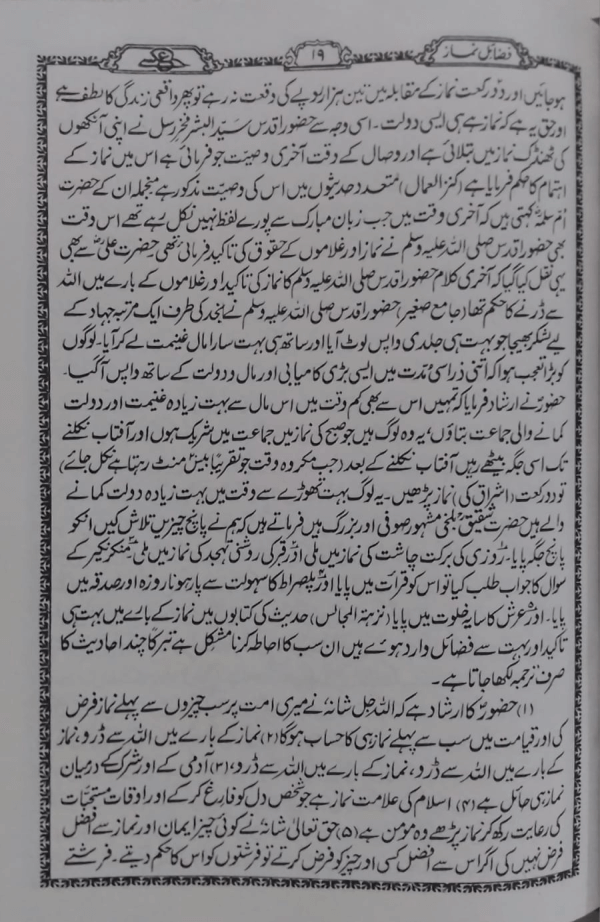 فضائل نماز
۱۹
ہوجائیں اور دو رکعت نماز کے مقابلہ میں تین ہزار روپے کی وقعت نہ رہے تو پھر واقعی زندگی کا لطف ہے
اور حق یہ ہے کہ نماز ہے ہی ایسی دولت۔ اسی وجہ سے حضور اقدس سید البشر فخر رسل نے اپنی آنکھوں
کی ٹھنڈک نماز میں بتلائی ہے اور وصال کے وقت آخری وصیت جو فرمائی ہے اس میں نماز کے
اہتمام کا حکم فرمایا ہے (کنز العمال) متعدد حدیثوں میں اس کی وصیت مذکور ہے منجملہ ان کے حضرت
ام سلمہؓ کہتی ہیں کہ آخری وقت میں جب زبان مبارک سے پورے لفظ نہیں نکل رہے تھے اس وقت
بھی حضور اقدس صلی اللہ علیہ وسلم نے نماز اور غلاموں کے حقوق کی تاکید فرمائی تھی حضرت علیؓ سے بھی
یہی نقل کیا گیا کہ آخری کلام حضور اقدس صلی اللہ علیہ وسلم کا نماز کی تاکید اور غلاموں کے بارے میں اللہ
سے ڈرنے کا حکم تھا (جامع صغیر) حضور اقدس صلی اللہ علیہ وسلم نے نجد کی طرف ایک مرتبہ جہاد کے
لیے لشکر بھیجا جو بہت ہی جلدی واپس لوٹ آیا اور ساتھ ہی بہت سارا مال غنیمت لے کر آیا۔ لوگوں
کو بڑا تعجب ہوا کہ اتنی ذرا سی مدت میں ایسی بڑی کامیابی اور مال و دولت کے ساتھ واپس آگیا۔
حضورؐ نے ارشاد فرمایا کہ تمہیں اس سے بھی کم وقت میں اس مال سے بہت زیادہ غنیمت اور دولت
کمانے والی جماعت بتاؤں، یہ وہ لوگ ہیں جو صبح کی نماز میں جماعت میں شریک ہوں اور آفتاب نکلنے
تک اسی جگہ بیٹھے رہیں آفتاب نکلنے کے بعد (جب مکروہ وقت جو تقریباً بیس منٹ رہتا ہے نکل جائے)
تو دو رکعت (اشراق کی) نماز پڑھیں۔ یہ لوگ بہت تھوڑے سے وقت میں بہت زیادہ دولت کمانے
والے ہیں حضرت شقیق بلخی مشہور صوفی اور بزرگ ہیں فرماتے ہیں کہ ہم نے پانچ چیزیں تلاش کیں انکو
پانچ جگہ پایا۔ روزی کی برکت چاشت کی نماز میں ملی اور قبر کی روشنی تہجد کی نماز میں ملی، منکر نکیر کے
سوال کا جواب طلب کیا تو اس کو قرأت میں پایا اور پلصراط کا سہولت سے پار ہونا روزہ اور صدقہ میں
پایا۔ اور عرش کا سایہ خلوت میں پایا (نزہۃ المجالس) حدیث کی کتابوں میں نماز کے بارے میں بہت ہی
تاکید اور بہت سے فضائل وارد ہوئے ہیں ان سب کا احاطہ کرنا مشکل ہے تبرکاً چند احادیث کا
صرف ترجمہ لکھا جاتا ہے۔
(۱) حضورؐ کا ارشاد ہے کہ اللہ جل شانہٗ نے میری امت پر سب چیزوں سے پہلے نماز فرض
کی اور قیامت میں سب سے پہلے نماز ہی کا حساب ہوگا (۲) نماز کے بارے میں اللہ سے ڈرو، نماز
کے بارے میں اللہ سے ڈرو، نماز کے بارے میں اللہ سے ڈرو، (۳) آدمی کے اور شرک کے درمیان
نماز ہی حائل ہے (۴) اسلام کی علامت نماز ہے جو شخص دل کو فارغ کرکے اور اوقات مستحبات
کی رعایت رکھ کر نماز پڑھے وہ مؤمن ہے (۵) حق تعالیٰ شانہٗ نے کوئی چیز ایمان اور نماز سے افضل
فرض نہیں کی اگر اس سے افضل کسی اور چیز کو فرض کرتے تو فرشتوں کو اس کا حکم دیتے۔ فرشتے